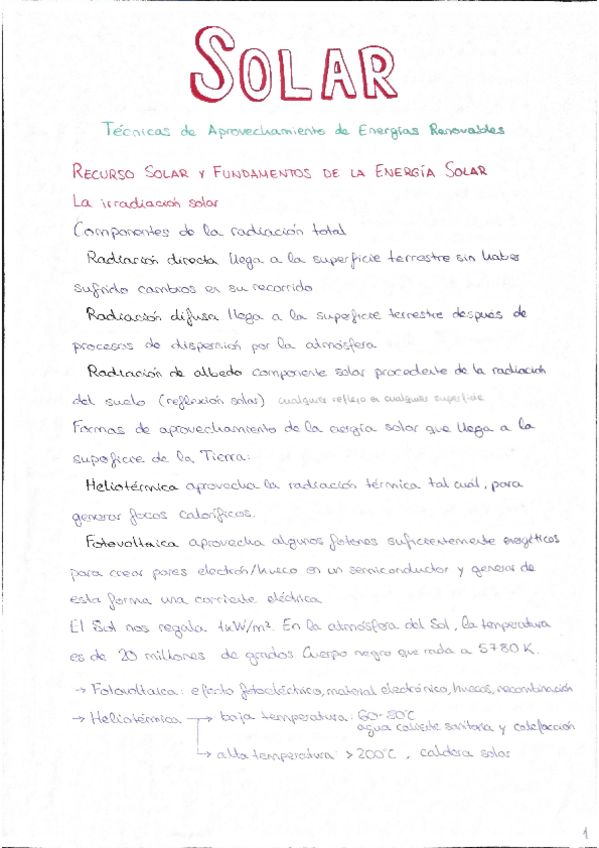 SOLAR
Técnicas de Aprovechamiento de Energías Renovables
RECURSO SOLAR Y FUNDAMENTOS DE LA ENERGÍA SOLAR
La irradiación solar
Componentes de la radiación total
Radiación directa llega a la superficie terrestre sin haber
sufrido cambios en su recorrido
Radiación difusa llega a la superficie terrestre después de
procesos de dispersión por la atmósfera
Radiación de albedo componente solar procedente de la radiación
del suelo (reflexión solar) cualquier reflejo en cualquier superficie
Formas de aprovechamiento de la energía solar que llega a la
superficie de la Tierra:
Heliotérmica aprovecha la radiación térmica tal cuál, para
generar focos caloríficos.
Fotovoltaica aprovecha algunos fotones suficientemente energéticos
para crear pares electrón/hueco en un semiconductor y generar de
esta forma una corriente eléctrica
El Sol nos regala 1kW/m². En la atmósfera del Sol, la temperatura
es de 20 millones de grados Cuerpo negro que radia a 5780 K.
→ Fotovoltaica: efecto fotoeléctrico, material electrónico, huecos, recombinación
→ Heliotérmica → baja temperatura: 60-80°C
agua caliente sanitaria y calefacción
→ alta temperatura: >200°C, caldera solar
1